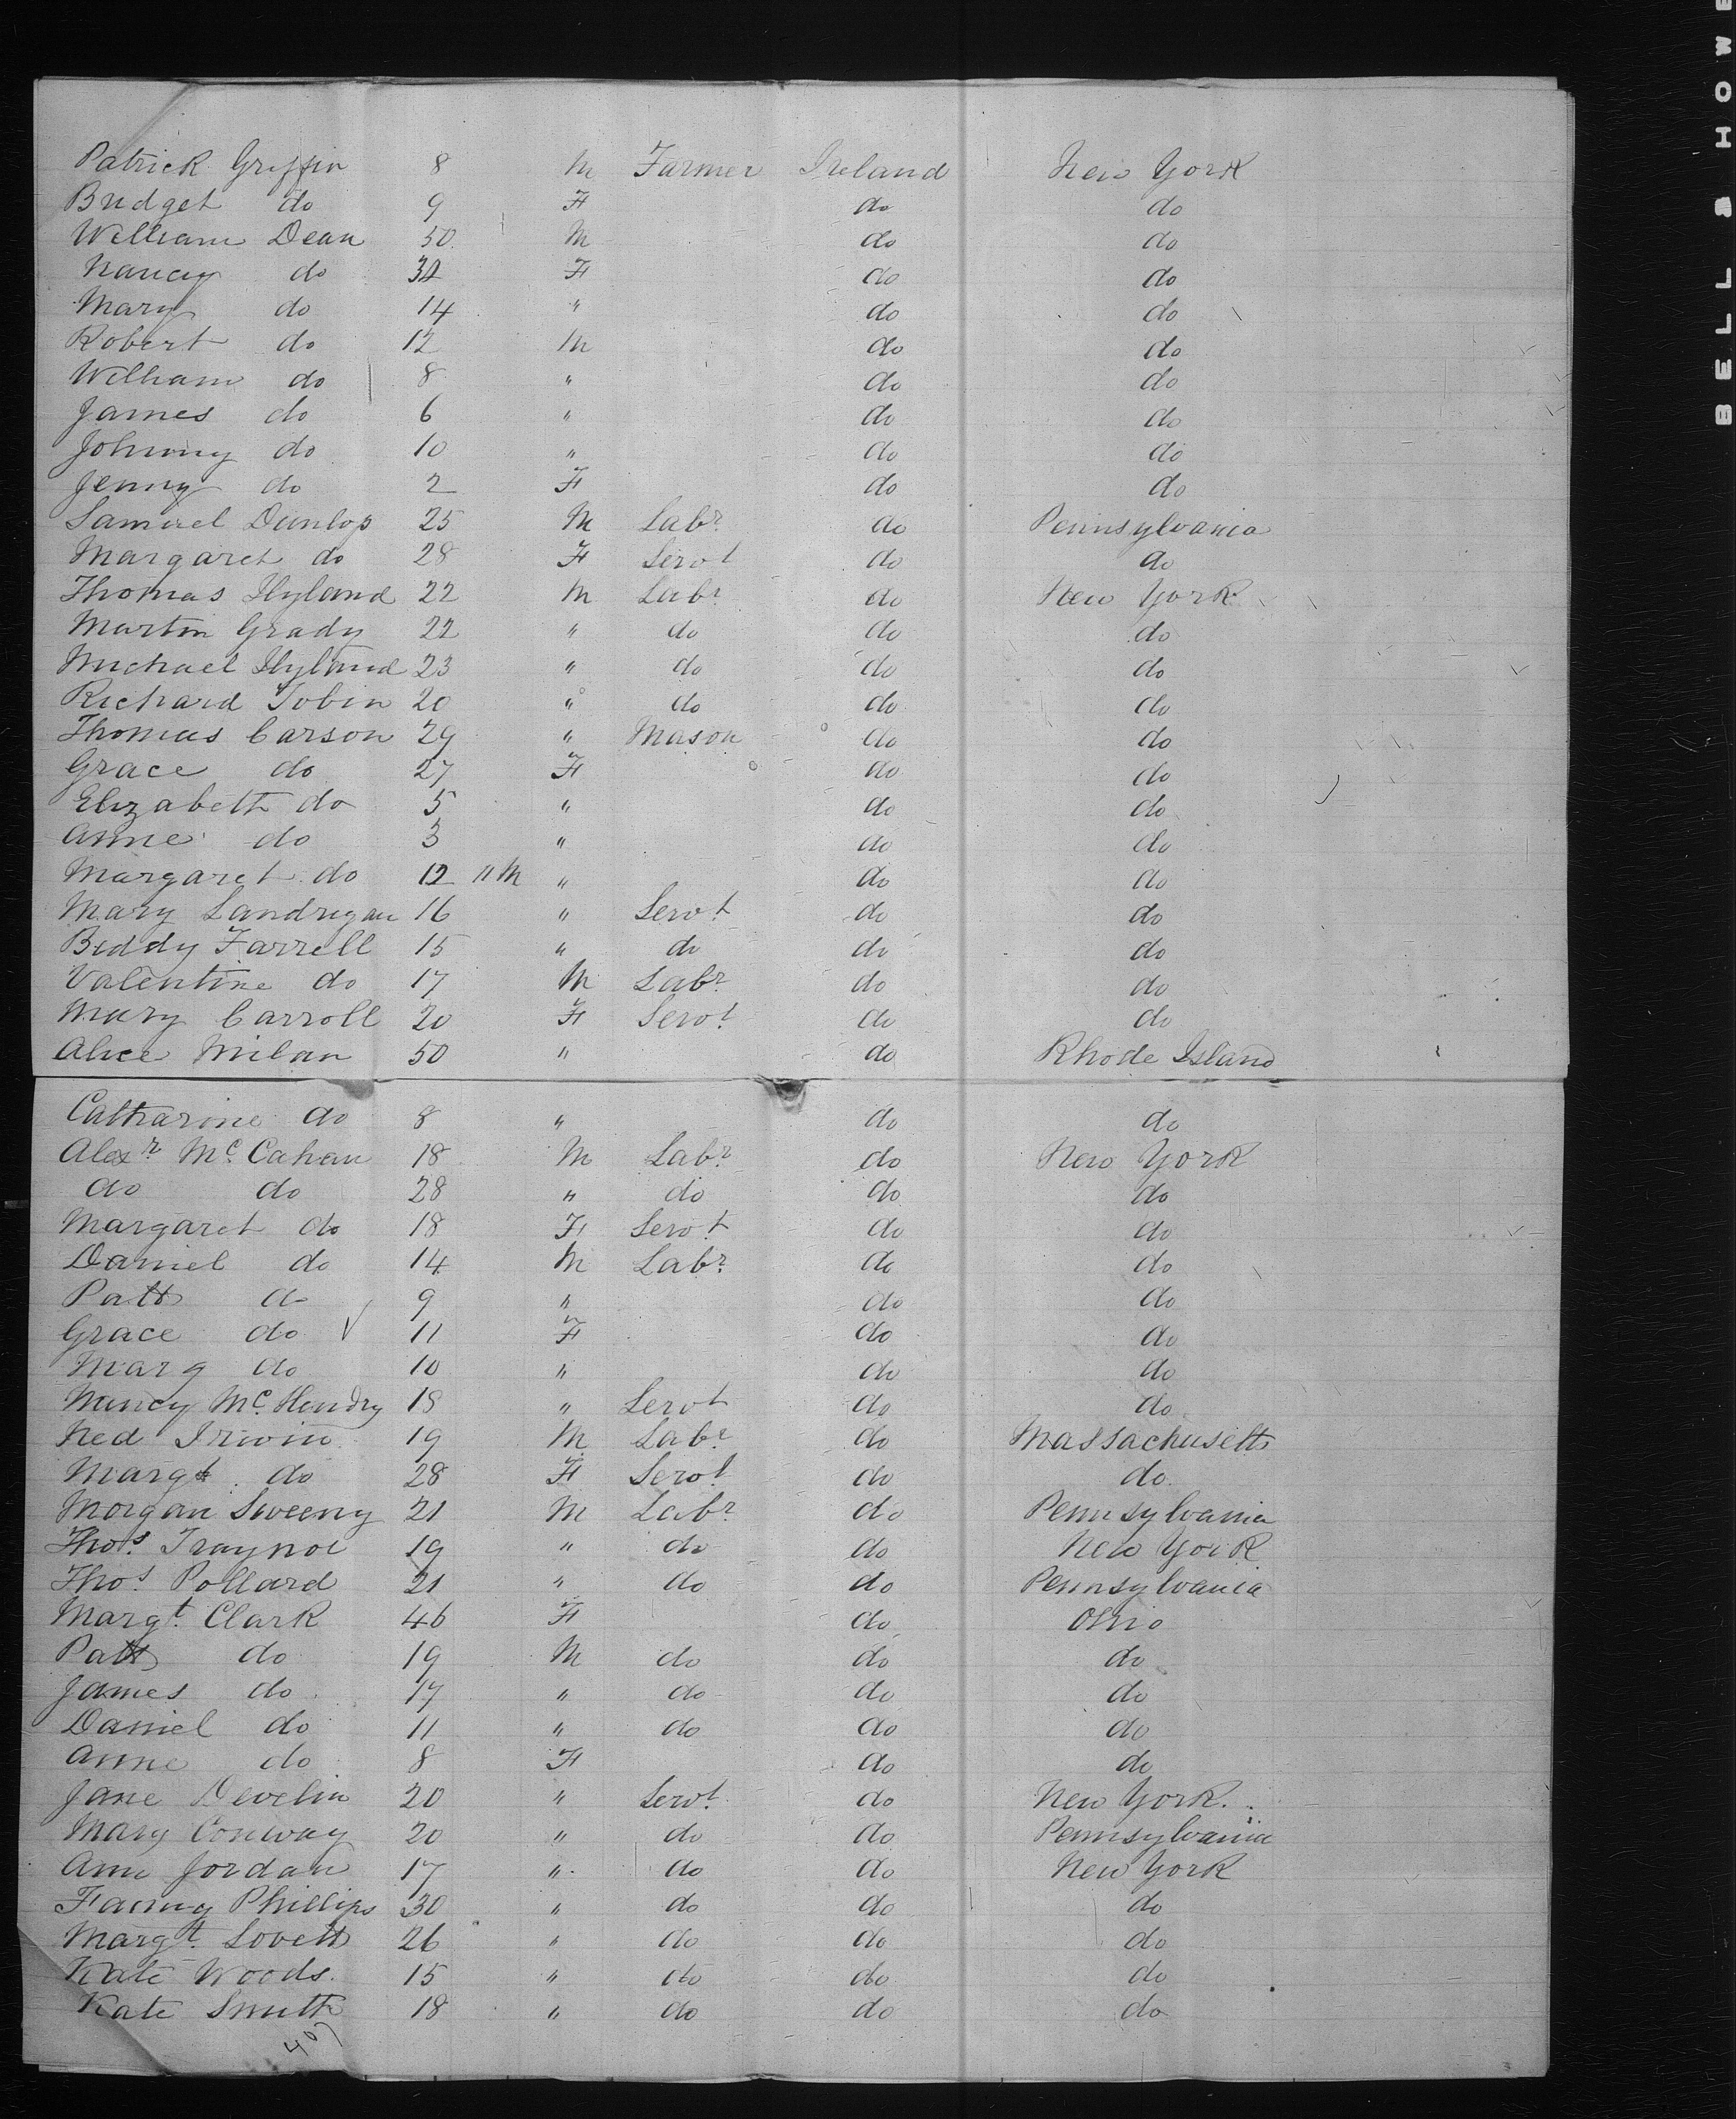 Patrick Griffin 8 M Farmer Ireland New York
Bridget do 9 F do do
William Dean 30 M do do
Nancy do 32 F do do
Mary do 14 " do do
Robert do 12 M do do
William do 8 " do do
James do 6 " do do
Johnny do 10 " do do
Jenny do 2 F do do
Samuel Dunlop 25 M Labr do Pennsylvania
Margaret do 28 F Servt do do
Thomas Hyland 22 M Labr do New York
Martin Grady 22 " do do do
Michael Hyland 23 " do do do
Richard Tobin 20 " do do do
Thomas Carson 29 " Mason do do
Grace do 27 F do do
Elizabeth do 5 " do do
Anne do 3 " do do
Margaret do 12 " M " do do
Mary Landrigan 16 " Servt do do
Biddy Farrell 15 " do do do
Valentine do 17 M Labr do do
Mary Carroll 20 F Servt do do
Alice Milan 50 " do Rhode Island
Catharine do 8 " do do
Alexr McCahan 18 M Labr do New York
do do 28 " do do do
Margaret do 18 F Servt do do
Daniel do 14 M Labr do do
Patt do 9 " do do
Grace do 11 F do do
Mary do 10 " do do
Nancy McHendry 18 " Servt do do
Ned Irwin 19 M Labr do Massachusetts
Margt do 28 F Servt do do
Morgan Sweeny 21 M Labr do Pennsylvania
Thos Traynor 19 " do do New York
Thos Pollard 21 " do do Pennsylvania
Margt Clark 46 F do Ohio
Patt do 19 M do do do
James do 17 " do do do
Daniel do 11 " do do do
Anne do 8 F do do
Jane Develin 20 " Servt do New York
Mary Conway 20 " do do Pennsylvania
Ann Jordan 17 " do do New York
Fanny Phillips 30 " do do do
Margt Lovett 26 " do do do
Kate Woods 15 " do do do
Kate Smith 18 " do do do
407
BELL & HOWE